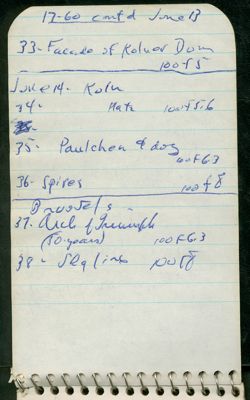 17-60 cont'd June 13
33- Facade of Kolner Dom
100 f 5
June 14- Koln
34- 100 f 5.6
35- Paulchen & dog
f 6.3
36- Spires 100 f 8
Brussels -
37- Arch of Triumph
(50 years) 100 f 6.3
38- 100 f 8